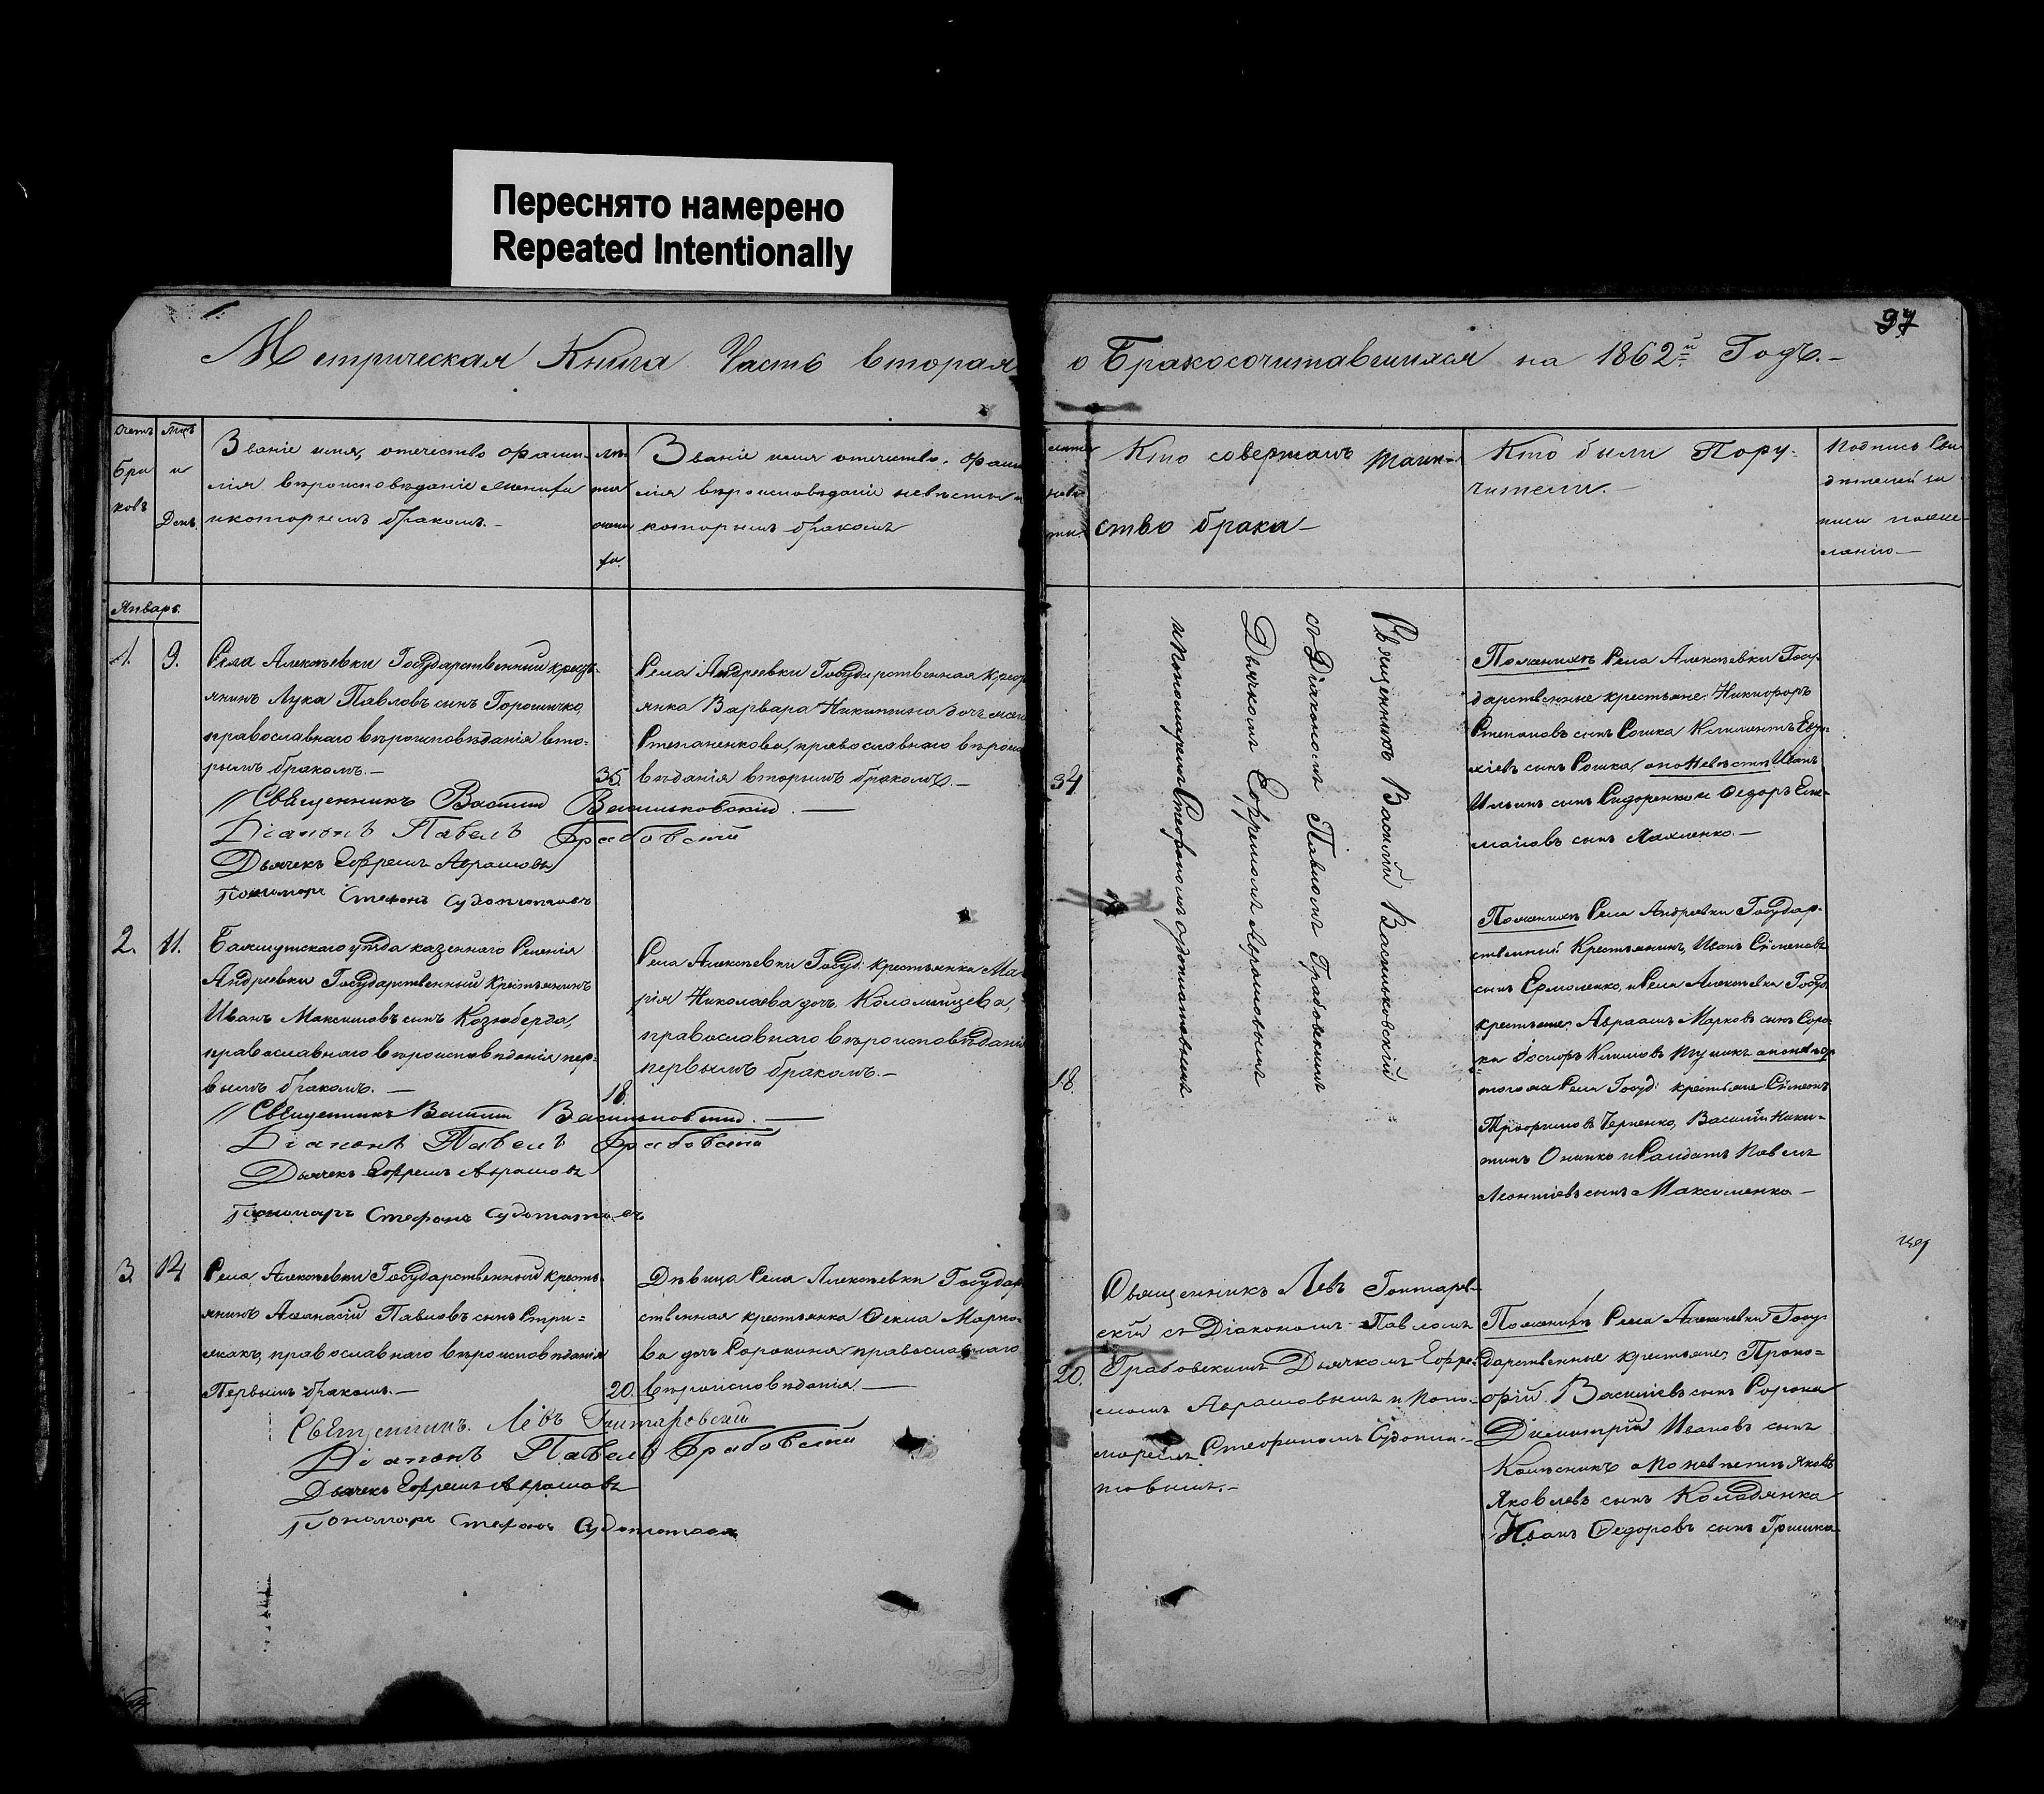 Переснято намерено
Repeated Intentionally
97
Метрическая Книга Часть вторая о Бракосочитавшихся на 1862й Годъ.-
Счетъ браковъ
Мцъ и День.
Званіе имя, отечество фами-
лія вѣроисповѣданіе жениха
и которымъ бракомъ.-
лѣта жениха.
Званіе имя отечество, фами
лія вѣроисповѣданіе невѣсты и
которымъ бракомъ
лѣта невѣсты.
Кто совершалъ таин-
ство брака-
Кто были Пору-
чители.-
Подпись Сви
дѣтелей за
писи по же-
ланію-
Январь.
1.
9.
Села Алексѣевки Государственный кресть-
янинъ Лука Павловъ сынъ Горошичко,
православнаго вѣроисповѣданія вто-
рымъ бракомъ.-
35.
Священникъ Василій Васильковскій.
Діаконъ Павелъ Грабовскій
Дьячекъ Ефремъ Аврамовъ
Пономарь Стефанъ
Села Андреевки Государственная кресть
янка Варвара Никитина дочь
Степаненкова, православнаго вѣроиспо
вѣданія вторымъ бракомъ.-
34
Священникъ Василій Васильковскій
съ Діакономъ Павломъ Грабовскимъ
Дьячкомъ Ефремомъ Аврамовымъ
и Пономаремъ Стефаномъ
По женихѣ Села Алексѣевки Госу-
дарственные крестьяне: Никифоръ
Степановъ сынъ Сошка Климентъ
сынъ Рошка, а по Невѣстѣ Иванъ
Ильинъ сынъ Сидоренко и Федоръ
сынъ Лахненко.-
2.
11.
Бахмутскаго уѣзда казеннаго Селенія
Андреевки Государственный крестьянинъ
Иванъ Максимовъ сынъ Козюберда,
православнаго вѣроисповѣданія пер-
вымъ бракомъ.-
18.
Священникъ Василій Васильковскій.
Діаконъ Павелъ Грабовскій
Дьячекъ Ефремъ Аврамовъ
Пономарь Стефанъ
Села Алексѣевки Госуд: крестьянка Ма-
рія Николаева дочь Коломийцева,
православнаго вѣроисповѣданія
первымъ бракомъ.-
18.
По женихѣ Села Андреевки Государ-
ственный Крестьянинъ, Иванъ Сѵмеоновъ
сынъ Ермоленко, и Села Алексѣевки Госуд.
крестьяне, Авраамъ Марковъ сынъ Соро-
ка Іосифъ Климовъ
того жъ Села Госуд: крестьяне Сѵмеонъ
Трофимовъ Черненко, Василій Ники-
тинъ Онипко и Солдатъ Павелъ
Леонтіевъ сынъ Максименко-
3.
14
Села Алексѣевки Государственный кресть-
янинъ Аѳанасій Павловъ сынъ Стри=
жакъ, православнаго вѣроисповѣданія
Первымъ бракомъ.-
20.
Священникъ Левъ Гонтаровскій
Діаконъ Павелъ Грабовскій
Дьячекъ Ефремъ Аврамовъ
Пономарь Стефанъ
Дѣвица Села Алексѣевки Государ
ственная крестьянка Ѳекла Марко-
ва дочь Сорокина православнаго
вѣроисповѣданія-
20.
Священникъ Левъ Гонтаров-
скій съ Діакономъ Павломъ
Грабовскимъ Дьячкомъ Ефре-
момъ Аврамовымъ и Поно-
маремъ Стефаномъ
По женихѣ Села Алексѣевки Госу-
дарственные крестьяне, Проко=
фій Васильевъ сынъ Сорока
Димитрій Ивановъ сынъ
Колѣсникъ а по невѣстѣ Яковъ
Яковлевъ сынъ Колодянка
Иванъ Ѳедоровъ сынъ Гришко